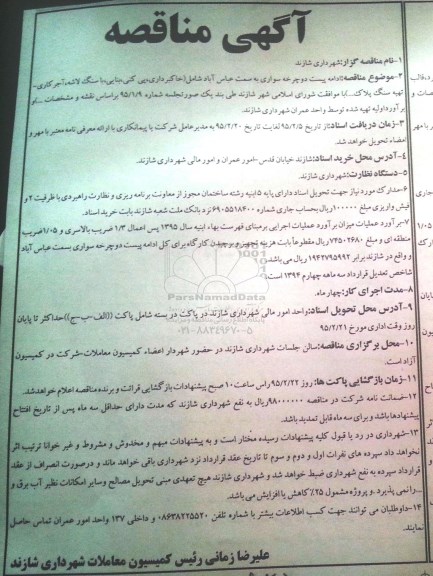 آگهی مناقصه
۱-نام مناقصه گزار: شهرداری شازند
۲-موضوع مناقصه: ادامه پیست دوچرخه سواری به سمت عباس آباد شامل(خاکبرداری،پی کنی،بنایی،با سنگ لاشه،آجرکاری-
تهیه سنگ پلاک،...)با موافقت شورای اسلامی شهر شازند طی بند یک صورتجلسه شماره ۹۵/۱/۹ براساس نقشه و مشخصات ...و
برآورد اولیه تهیه شده توسط واحد عمران شهرداری شازند.
۳-زمان دریافت اسناد: از تاریخ ۹۵/۲/۵ لغایت تاریخ ۹۵/۲/۲۰ به مدیرعامل شرکت یا پیمانکاری با ارائه معرفی نامه معتبر با مهر و
امضاء تحویل خواهد شد.
۴-آدرس محل خرید اسناد: شازند خیابان قدس-امور عمران و امور مالی شهرداری شازند.
۵-دستگاه نظارت: شهرداری شازند.
۶-مدارک مورد نیاز جهت تحویل اسناد دارای پایه ۵ ابنیه رشته ساختمان مجوز از معاونت برنامه ریزی و نظارت راهبردی با ظرفیت ۲ و
فیش واریزی مبلغ ۱۰۰۰۰۰۰ ریال بحساب جاری شماره ۶۹۰۵۵۱۸۶۰۰ نزد بانک ملت شعبه شازند بابت خرید اسناد.
۷-برآورد عملیات میزان برآورد عملیات اجرایی برمبنای فهرست بهاء ابنیه سال ۱۳۹۵ پس اعمال ۱/۳ ضریب بالاسری و ۱/۰۵ ضریب
منطقه ای و مبلغ ۷۴۵۰۲۶۸۰ ریال مقطوعاً بابت هزینه تجهیز و برچیدن کارگاه برای کل ادامه پیست دوچرخه سواری بسمت عباس آباد
و واقع در شازند برابر ۱۹۶۴۲۷۹۵۹۹۲ ریال می باشد.
شاخص تعدیل قرارداد سه ماهه چهارم ۱۳۹۴ است.
۸-مدت اجرای کار: چهار ماه.
۹-آدرس محل تحویل اسناد: واحد امور مالی شهرداری شازند در پاکت در بسته شامل پاکت ((الف-ب-ج)) حداکثر تا پایان
روز وقت اداری مورخ ۹۵/۲/۲۱
۱۰-محل برگزاری مناقصه: سالن جلسات شهرداری شازند در حضور شهردار اعضاء کمیسیون معاملات-شرکت در کمیسیون
آزاد است.
۱۱-زمان بازگشایی پاکت ها: روز ۹۵/۲/۲۲ راس ساعت ۱۰ صبح پیشنهادات بازگشایی قرائت و برنده مناقصه اعلام خواهد شد.
۱۲-ضمانت نامه شرکت در مناقصه ۹۸۰۰۰۰۰۰۰ ریال به نفع شهرداری شازند که مدت دارای حداقل سه ماه پس از تاریخ افتتاح
پیشنهادها باشد و برای سه ماه قابل تمدید باشد.
۱۳-شهرداری در رد یا قبول کلیه پیشنهادات رسیده مختار است و به پیشنهادات مبهم و مخدوش و مشروط و غیر خوانا ترتیب اثر
نخواهد داد سپرده های نفرات اول و دوم و سوم تا تاریخ عقد قرارداد نزد شهرداری باقی خواهد ماند و درصورت انصراف از عقد
قرارداد سپرده به نفع شهرداری ضبط خواهد شد و شهرداری شازند هیچ تعهدی مبنی تحویل مصالح وسایر امکانات نظیر آب برق و
...رانمی پذیرد.و پروژه مشمول ۲۵٪ کاهش یا افزایش می باشد.
۱۴-داوطلبان می توانند جهت کسب اطلاعات بیشتر با شماره تلفن ۰۸۶۳۸۲۲۵۵۲۰ و داخلی ۱۳۷ واحد امور عمران تماس حاصل
نمایند.
علیرضا زمانی رئیس کمیسیون معاملات شهرداری شازند
ParsNamadData
۰۲۱-۸۸۳۴۹۶۷۰-۵